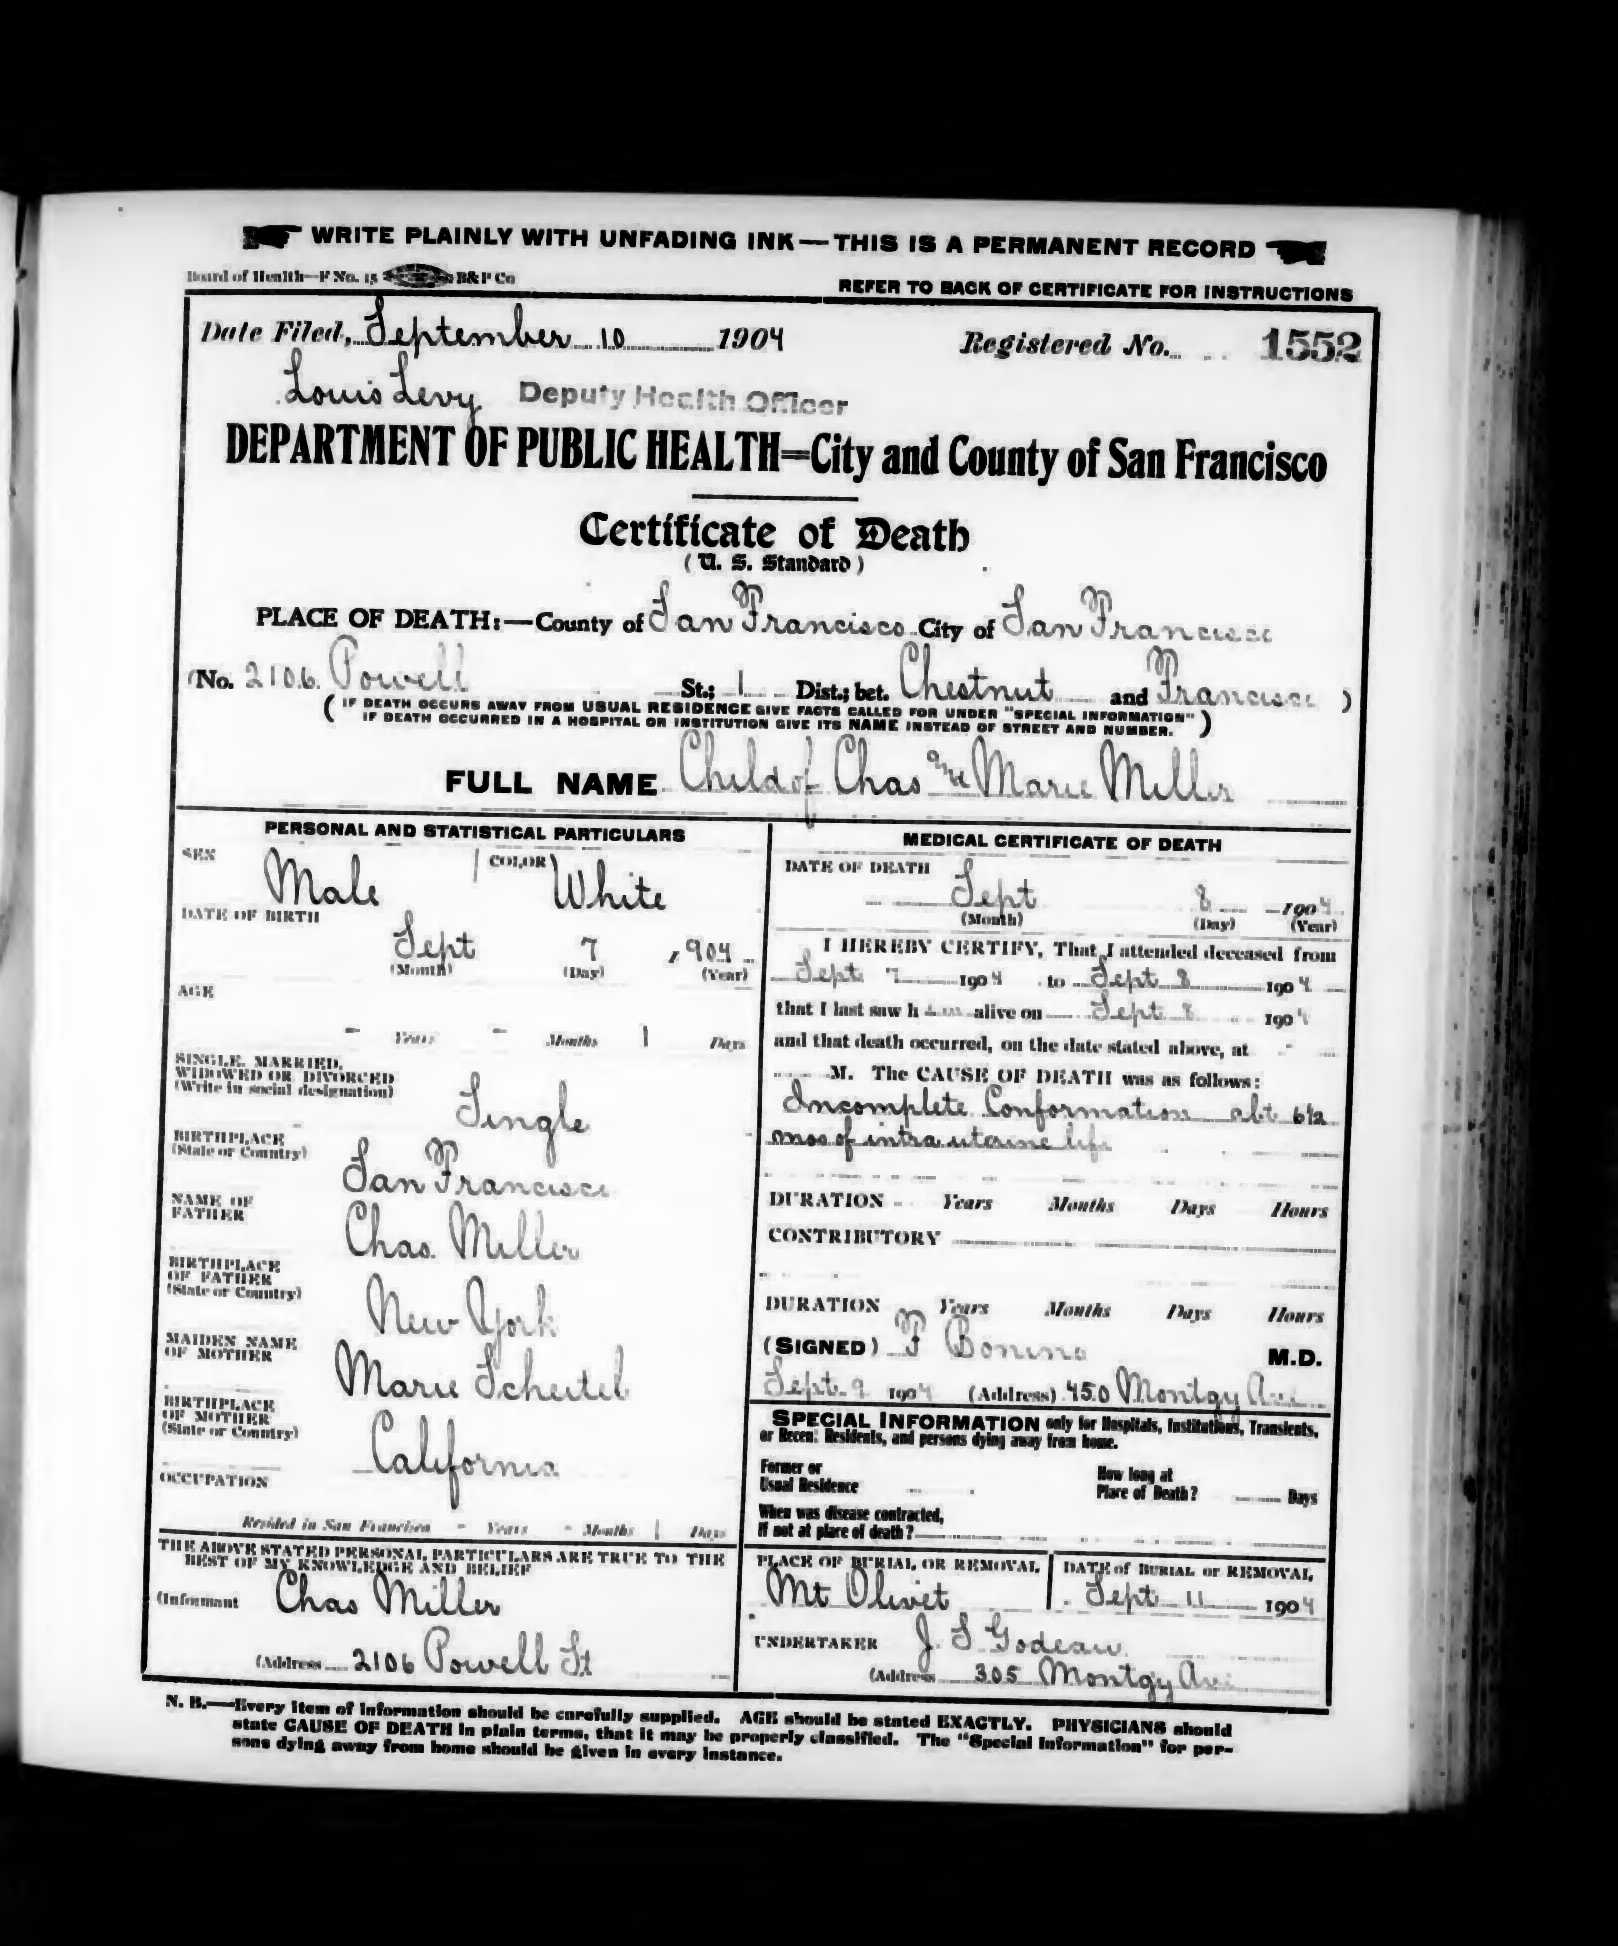 WRITE PLAINLY WITH UNFADING INK — THIS IS A PERMANENT RECORD
Board of Health—F No. 15 B&P Co
REFER TO BACK OF CERTIFICATE FOR INSTRUCTIONS
Date Filed, September 10 1904 Registered No. 1552
Louis Levy Deputy Health Officer
DEPARTMENT OF PUBLIC HEALTH=City and County of San Francisco
Certificate of Death
(U. S. Standard)
PLACE OF DEATH:—County of San Francisco City of San Francisco
(No. 2106 Powell St.; 1 Dist.; bet. Chestnut and Francisco )
( IF DEATH OCCURS AWAY FROM USUAL RESIDENCE GIVE FACTS CALLED FOR UNDER "SPECIAL INFORMATION"
IF DEATH OCCURRED IN A HOSPITAL OR INSTITUTION GIVE ITS NAME INSTEAD OF STREET AND NUMBER. )
FULL NAME Child of Chas and Marie Miller
PERSONAL AND STATISTICAL PARTICULARS
SEX Male COLOR White
DATE OF BIRTH
Sept 7 , 904
(Month) (Day) (Year)
AGE
- Years - Months 1 Days
SINGLE, MARRIED,
WIDOWED OR DIVORCED
(Write in social designation)
Single
BIRTHPLACE
(State or Country)
San Francisco
NAME OF
FATHER
Chas. Miller
BIRTHPLACE
OF FATHER
(State or Country)
New York
MAIDEN NAME
OF MOTHER
Marie Scheitel
BIRTHPLACE
OF MOTHER
(State or Country)
California
OCCUPATION
Resided in San Francisco - Years - Months 1 Days
THE ABOVE STATED PERSONAL PARTICULARS ARE TRUE TO THE
BEST OF MY KNOWLEDGE AND BELIEF
(Informant Chas Miller
(Address 2106 Powell St
MEDICAL CERTIFICATE OF DEATH
DATE OF DEATH
Sept 8 1904
(Month) (Day) (Year)
I HEREBY CERTIFY, That I attended deceased from
Sept 7 1904 to Sept 8 1904
that I last saw h im alive on Sept 8 1904
and that death occurred, on the date stated above, at
M. The CAUSE OF DEATH was as follows:
Incomplete Conformation abt 6½
mos of intra uterine life
DURATION Years Months Days Hours
CONTRIBUTORY
DURATION Years Months Days Hours
(SIGNED) P Bonino M.D.
Sept 9 1904 (Address) 450 Montgy Ave
SPECIAL INFORMATION only for Hospitals, Institutions, Transients,
or Recent Residents, and persons dying away from home.
Former or
Usual Residence
How long at
Place of Death? Days
When was disease contracted,
If not at place of death?
PLACE OF BURIAL OR REMOVAL
Mt Olivet
DATE of BURIAL or REMOVAL
Sept 11 1904
UNDERTAKER J. S. Godeau
(Address 305 Montgy Ave
N. B.—Every item of information should be carefully supplied. AGE should be stated EXACTLY. PHYSICIANS should
state CAUSE OF DEATH in plain terms, that it may be properly classified. The "Special Information" for per-
sons dying away from home should be given in every instance.